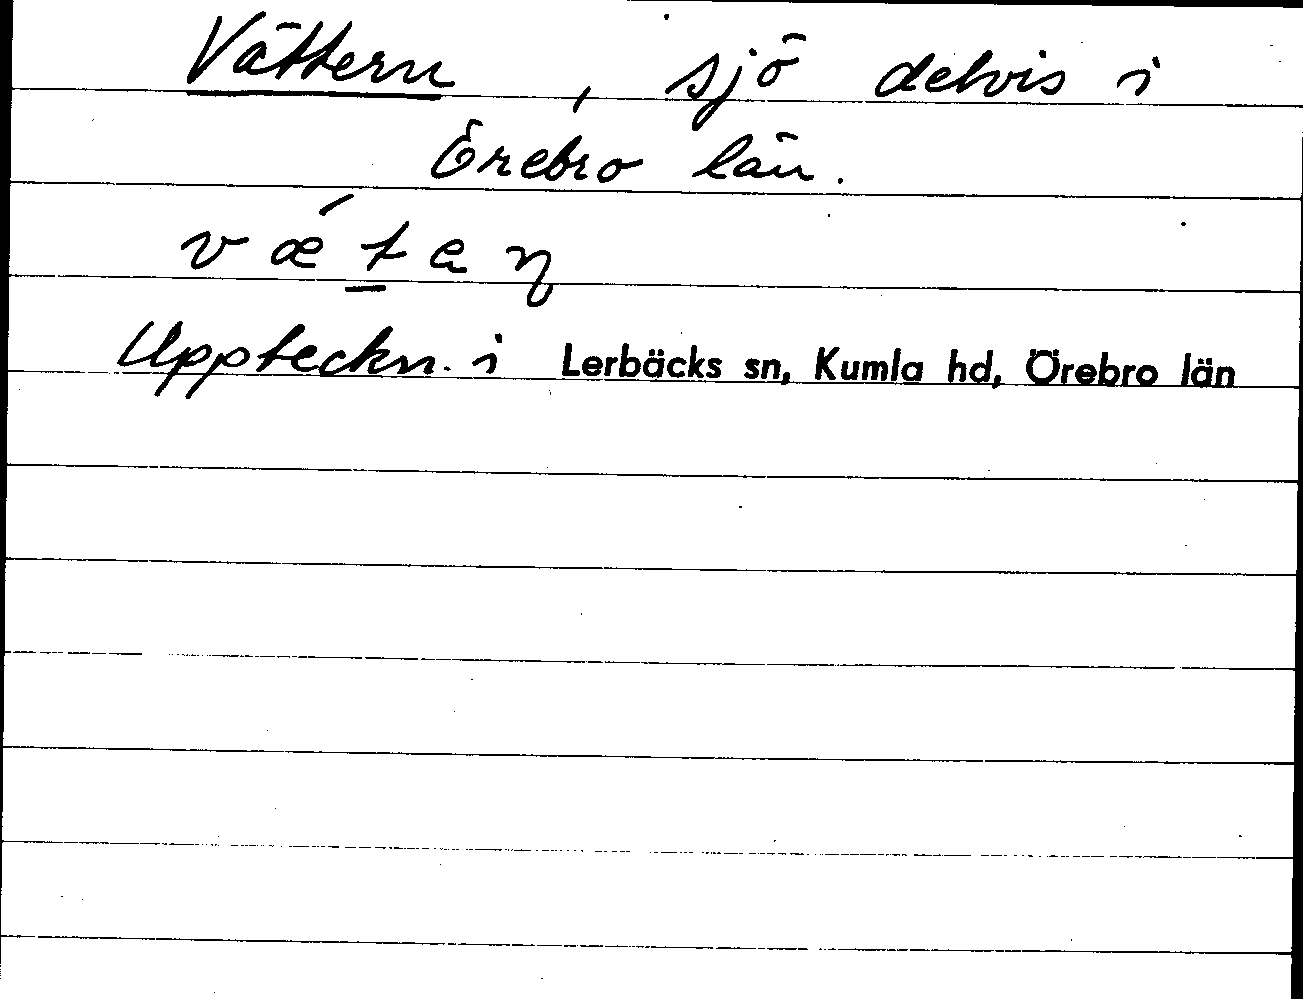 Vättern, sjö delvis i
Örebro län.
v ǽ t̲ a ɳ
Uppteckn. i Lerbäcks sn, Kumla hd, Örebro län